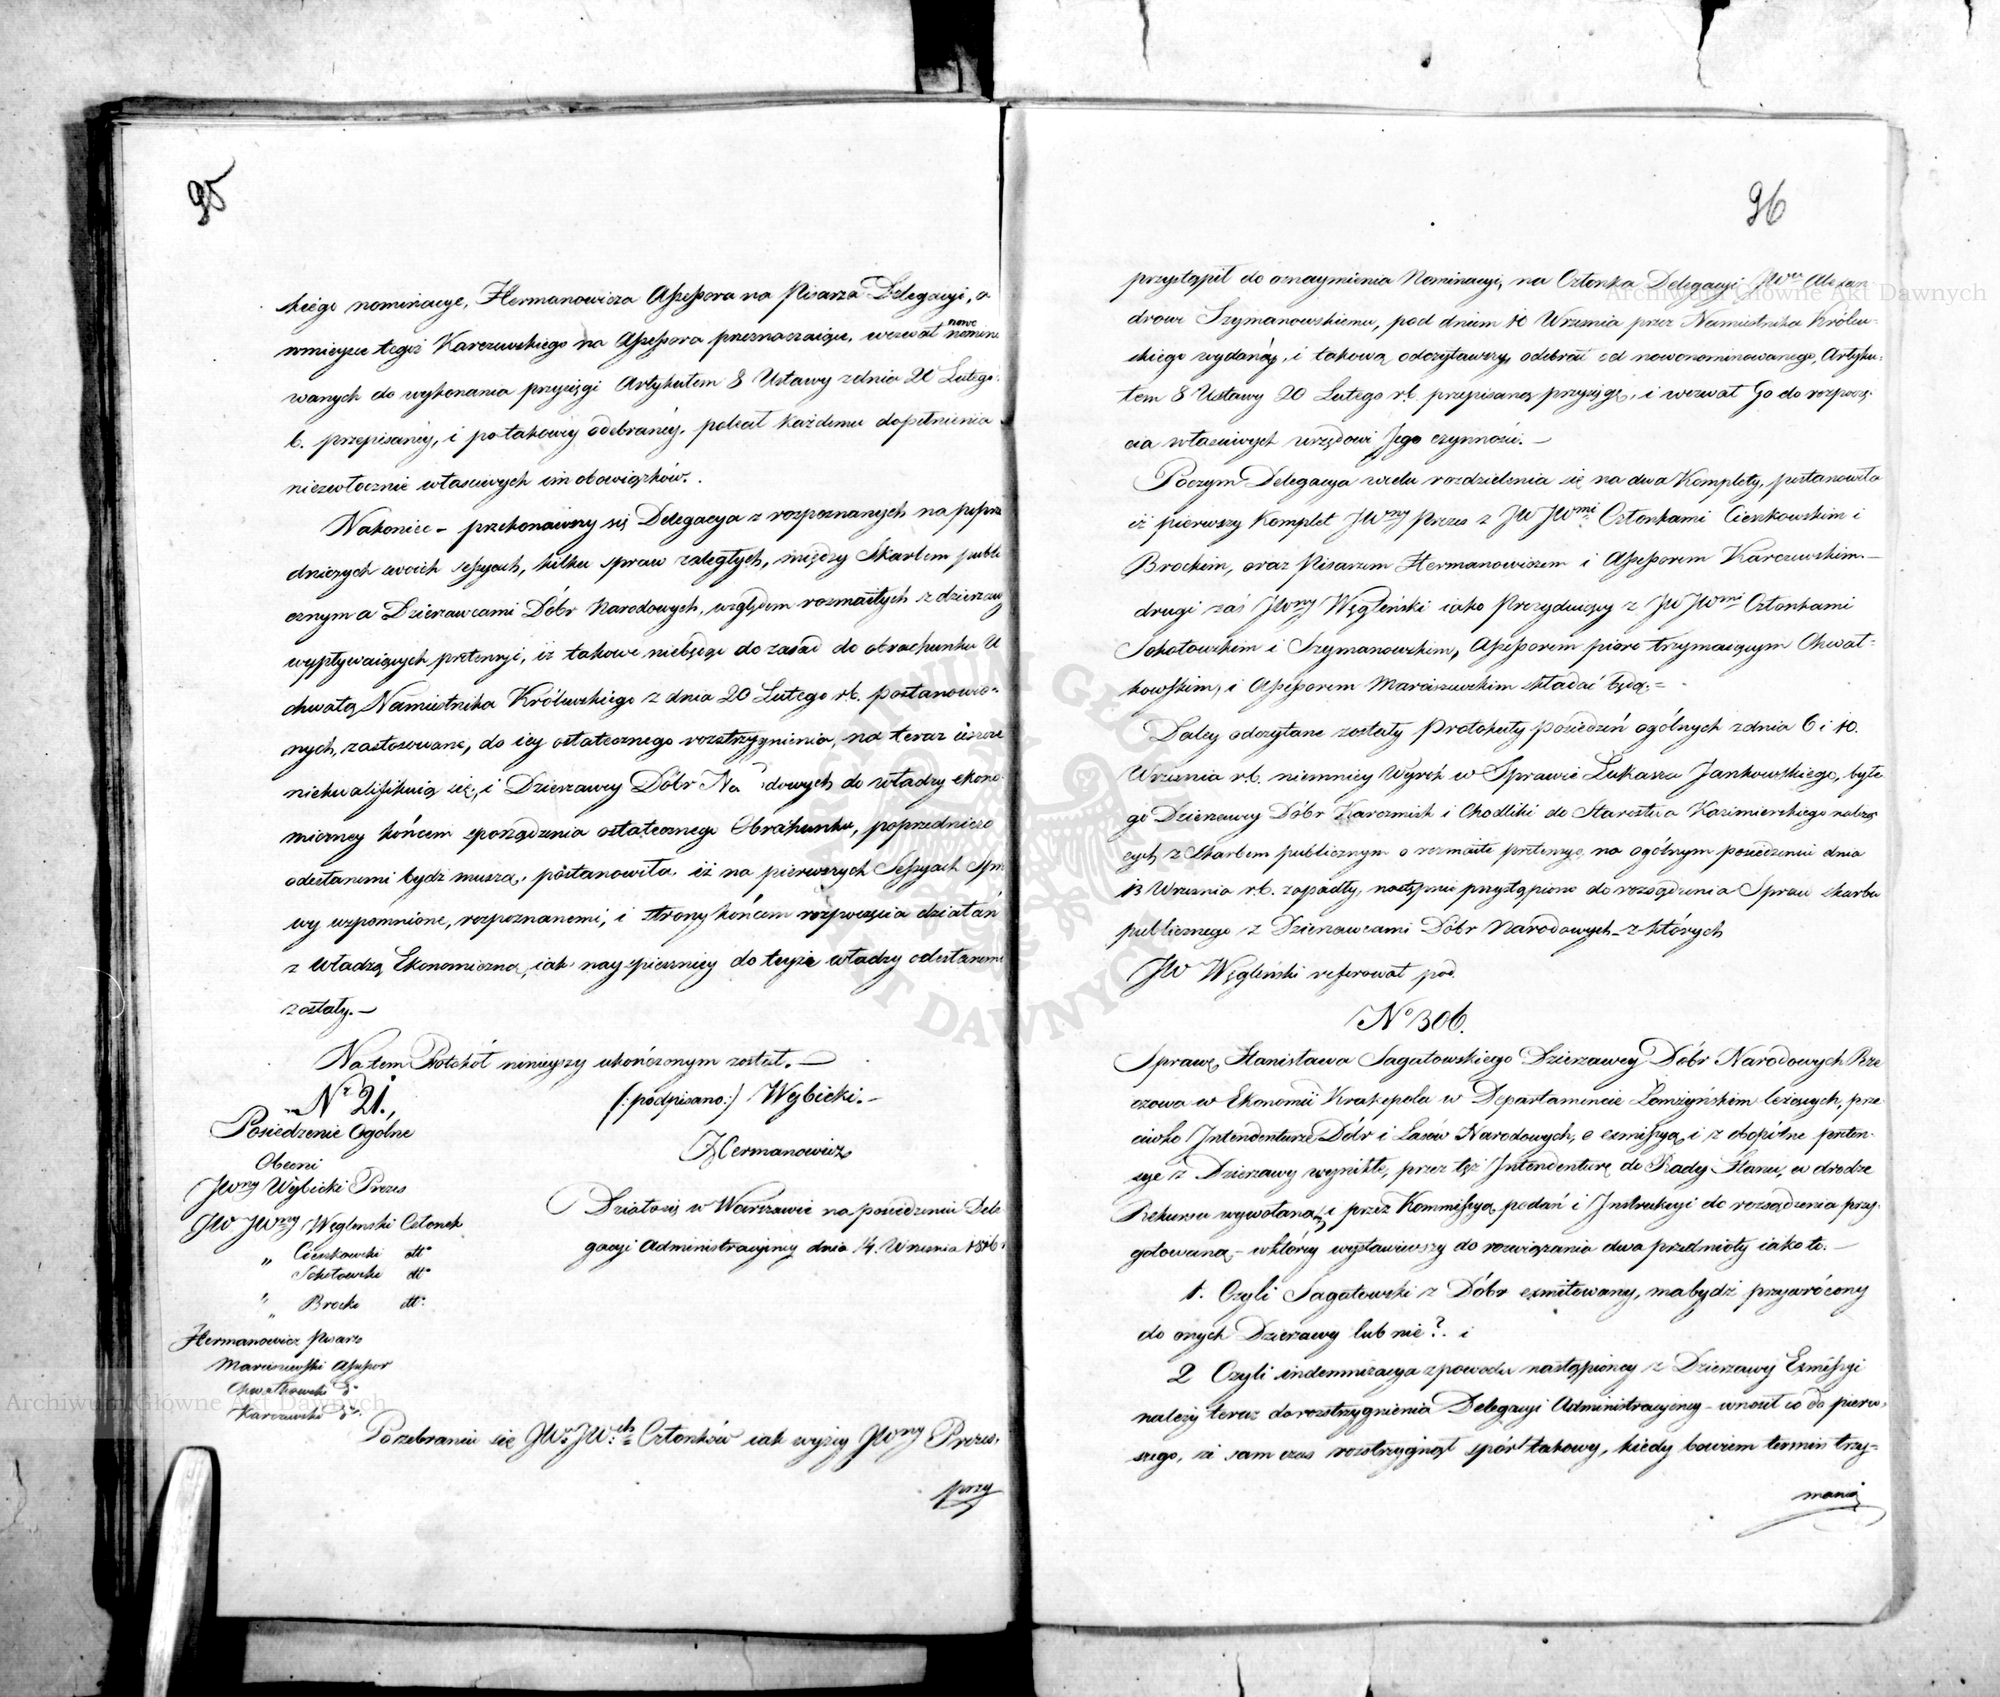 95
skiego nominacye, Hermanowicza Assessora na Pisarza Delegacyi, a
wmieysce tegoż Karczewskiego na Assessora przeznaczaiące, wezwał nowo nomino
wanych do wykonania przysięgi Artykułem 8 Ustawy z dnia 20 Lutego
b. przepisaney, i po takowey odebraney, polecał każdemu dopełnienia
niezwłocznie właściwych im obowiązków.
Nakoniec – przekonawszy się Delegacya z rozpoznanych na poprze
dniczych swoich sessyach, kilku spraw zaległych, między Skarbem publi
cznym a Dzierzawcami Dóbr Narodowych, względem rozmaitych z dzierzaw
wypływaiących pretensyi, iż takowe niebędąc do zasad do obrachunku U
chwałą Namiestnika Królewskiego z dnia 20 Lutego r.b. postanowio-
nych, zastosowane, do iey ostatecznego rozstrzygnienia, na teraz ieszcze
niekwalifikuią się, i Dzierzawcy Dóbr Na dowych do władzy ekono
miczney końcem sporządzenia ostatecznego Obrahunku, poprzedniczo
odesłanemi bydź muszą, postanowiła, iż na pierwszych Sessyach Spra
wy wzpomnione, rozpoznanemi, i strony końcem rozpoczęcia działań
z Władzą Ekonomiczną, iak nayspieszniey do teyże władzy odesłanemi
zostały. –
Na tem Protokół ninieyszy ukończonym został. –
(: podpisano :) Wybicki. –
Hermanowicz
Nr 21.,
Posiedzenie Ogólne
Obecni
JWny Wybicki Prezes
JW JWny Węglenski Członek
„ Cieszkowski dtt°
Sokołowski dtt°
„ Brocki dtt°
Hermanowicz Pisarz
Marciszewski Assessor
Chwatkowski d°
Karczewski d°
Działo się w Warszawie na posiedzeniu Dele
gacyi Administracyiney dnia 14. Wrzesnia 1816 r
Po zebraniu się JW. JW:ch Członków iak wyżey JWny Prezes,
przy
96
przystąpił do oznaymienia Nominacyi, na Członka Delegacyi JWu Alexan
drowi Szymanowskiemu, pod dniem 10 Wrzesnia przez Namiestnika Królew-
skiego wydaney, i takową odczytawszy, odebrał od nowonominowanego, Artyku-
łem 8 Ustawy 20 Lutego r.b. przepisaną przysięgę, i wezwał Go do rozpoczę-
cia właściwych urzędowi Jego czynności. –
Poczym Delegacya wcelu rozdzielenia się na dwa Komplety, postanowiła
iż pierwszy Komplet JWny Prezes z JW JWmi Członkami Cieszkowskim i
Brockim, oraz Pisarzem Hermanowiczem i Assessorem Karczewskim. –
drugi zaś JWny Węgleński iako Prezyduiący z JW JWmi Członkami
Sokołowskim i Szymanowskim, Assessorem pióro trzymaiącym Chwat-
kowskim, i Assessorem Marciszewskim składać będą. =
Daley odczytane zostały Protokuły posiedzeń ogólnych z dnia 6 i 10.
Wrzesnia r.b. niemniey Wyrok w Sprawie Łukasza Jankowskiego, byłe
go Dzierzawcy Dóbr Karczmisk i Chodliki do Starostwa Kazimierskiego należą
cych, z Skarbem publicznym o rozmaite pretensye, na ogólnym posiedzeniu dnia
13 Wrzesnia r.b. zapadły, następnie przystąpiono do rozsądzenia Spraw skarbu
publicznego z Dzierzawcami Dóbr Narodowych – z których
JW Węgleński referował pod
N° 306.
Sprawę, Stanisława Sagatowskiego Dzierzawcy Dóbr Narodowych Rze
czowa w Ekonomii Krakopola w Departamencie Łomżyńskim leżących, prze
ciwko Intendenturze Dóbr i Lasów Narodowych, o exmissyą, i z obopólne preten-
sye z Dzierzawy wynikłe, przez też Intendenturę do Rady Stanu, w drodze
Rekursu wywołaną, i przez Kommissyą podań i Instrukcyi do rozsądzenia przy-
gotowaną, – w którey wystawiwszy do rozwiązania dwa przedmioty iako to. –
1. Czyli Sagatowski z Dóbr exmitowany, ma bydź przywrócony
do onych Dzierzawy lub nie? i
2 Czyli indemnizacya z powodu nastąpioney z Dzierzawy Exmissyi
należy teraz do rozstrzygnienia Delegacyi Administracyiney – wnosił co do pierw-
szego, że sam czas rozstrzygnął spór takowy, kiedy bowiem termin trzy=
mania